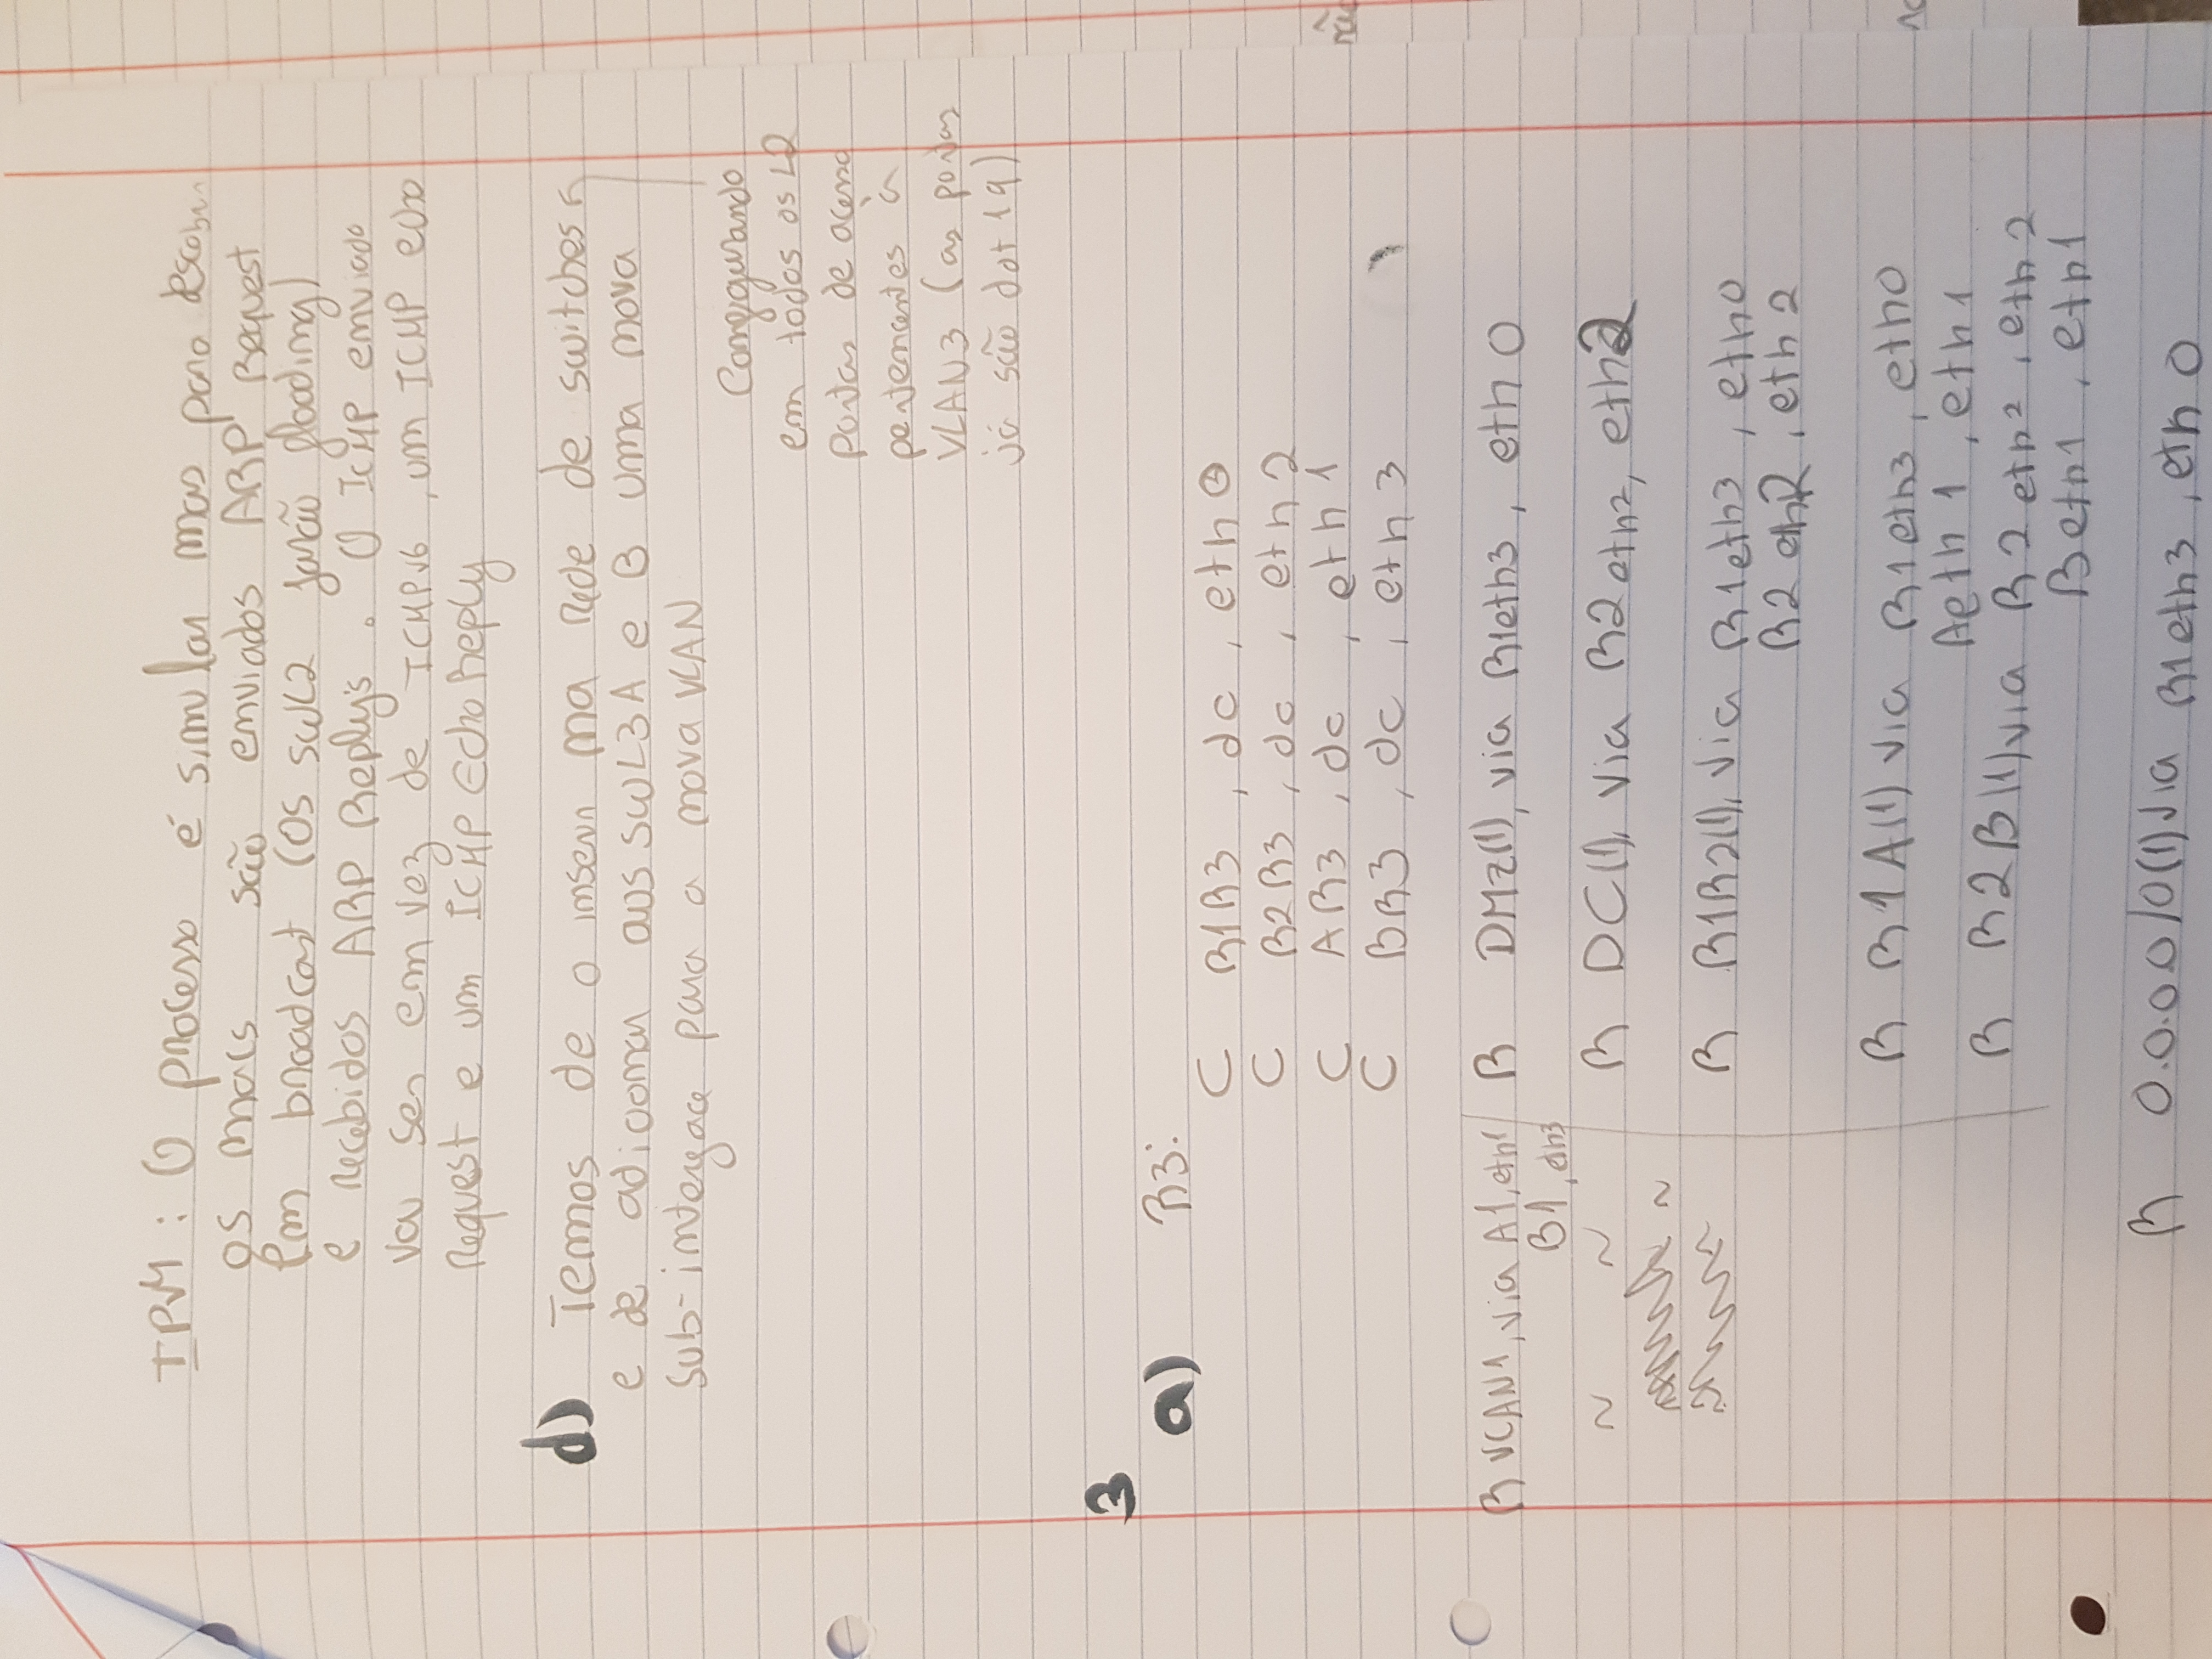 IPv4 : O processo é similar mas para descobrir
os macs são enviados ARP Request
em broadcast (os SWL2 farão flooding)
e recebidos ARP Reply's. O ICMP enviado
vai ser em vez de ICMPv6, um ICMP echo
request e um ICMP Echo Reply
d) Temos de o inserir na rede de switches
e de adicionar aos SWL3A e B uma nova
sub-interface para a nova VLAN
Configurando
em todos os L2
portas de acesso
pertencentes à
VLAN3 (as portas
já são dot1q)
3
a) R3:
C R1R3, dc, eth0
C R2R3, dc, eth2
C AR3, dc, eth1
C BR3, dc, eth3
R VLAN1, via A1, eth1
B1, eth3
~ ~
~
R DMZ(1), via R1eth3, eth0
R DC(1), via R2eth2, eth2
R R1R2(1), via R1eth3, eth0
R2eth2, eth2
R R1A(1) via R1eth3, eth0
Aeth1, eth1
R R2B(1) via R2eth2, eth2
Beth1, eth1
R 0.0.0.0/0(1) via R1eth3, eth0